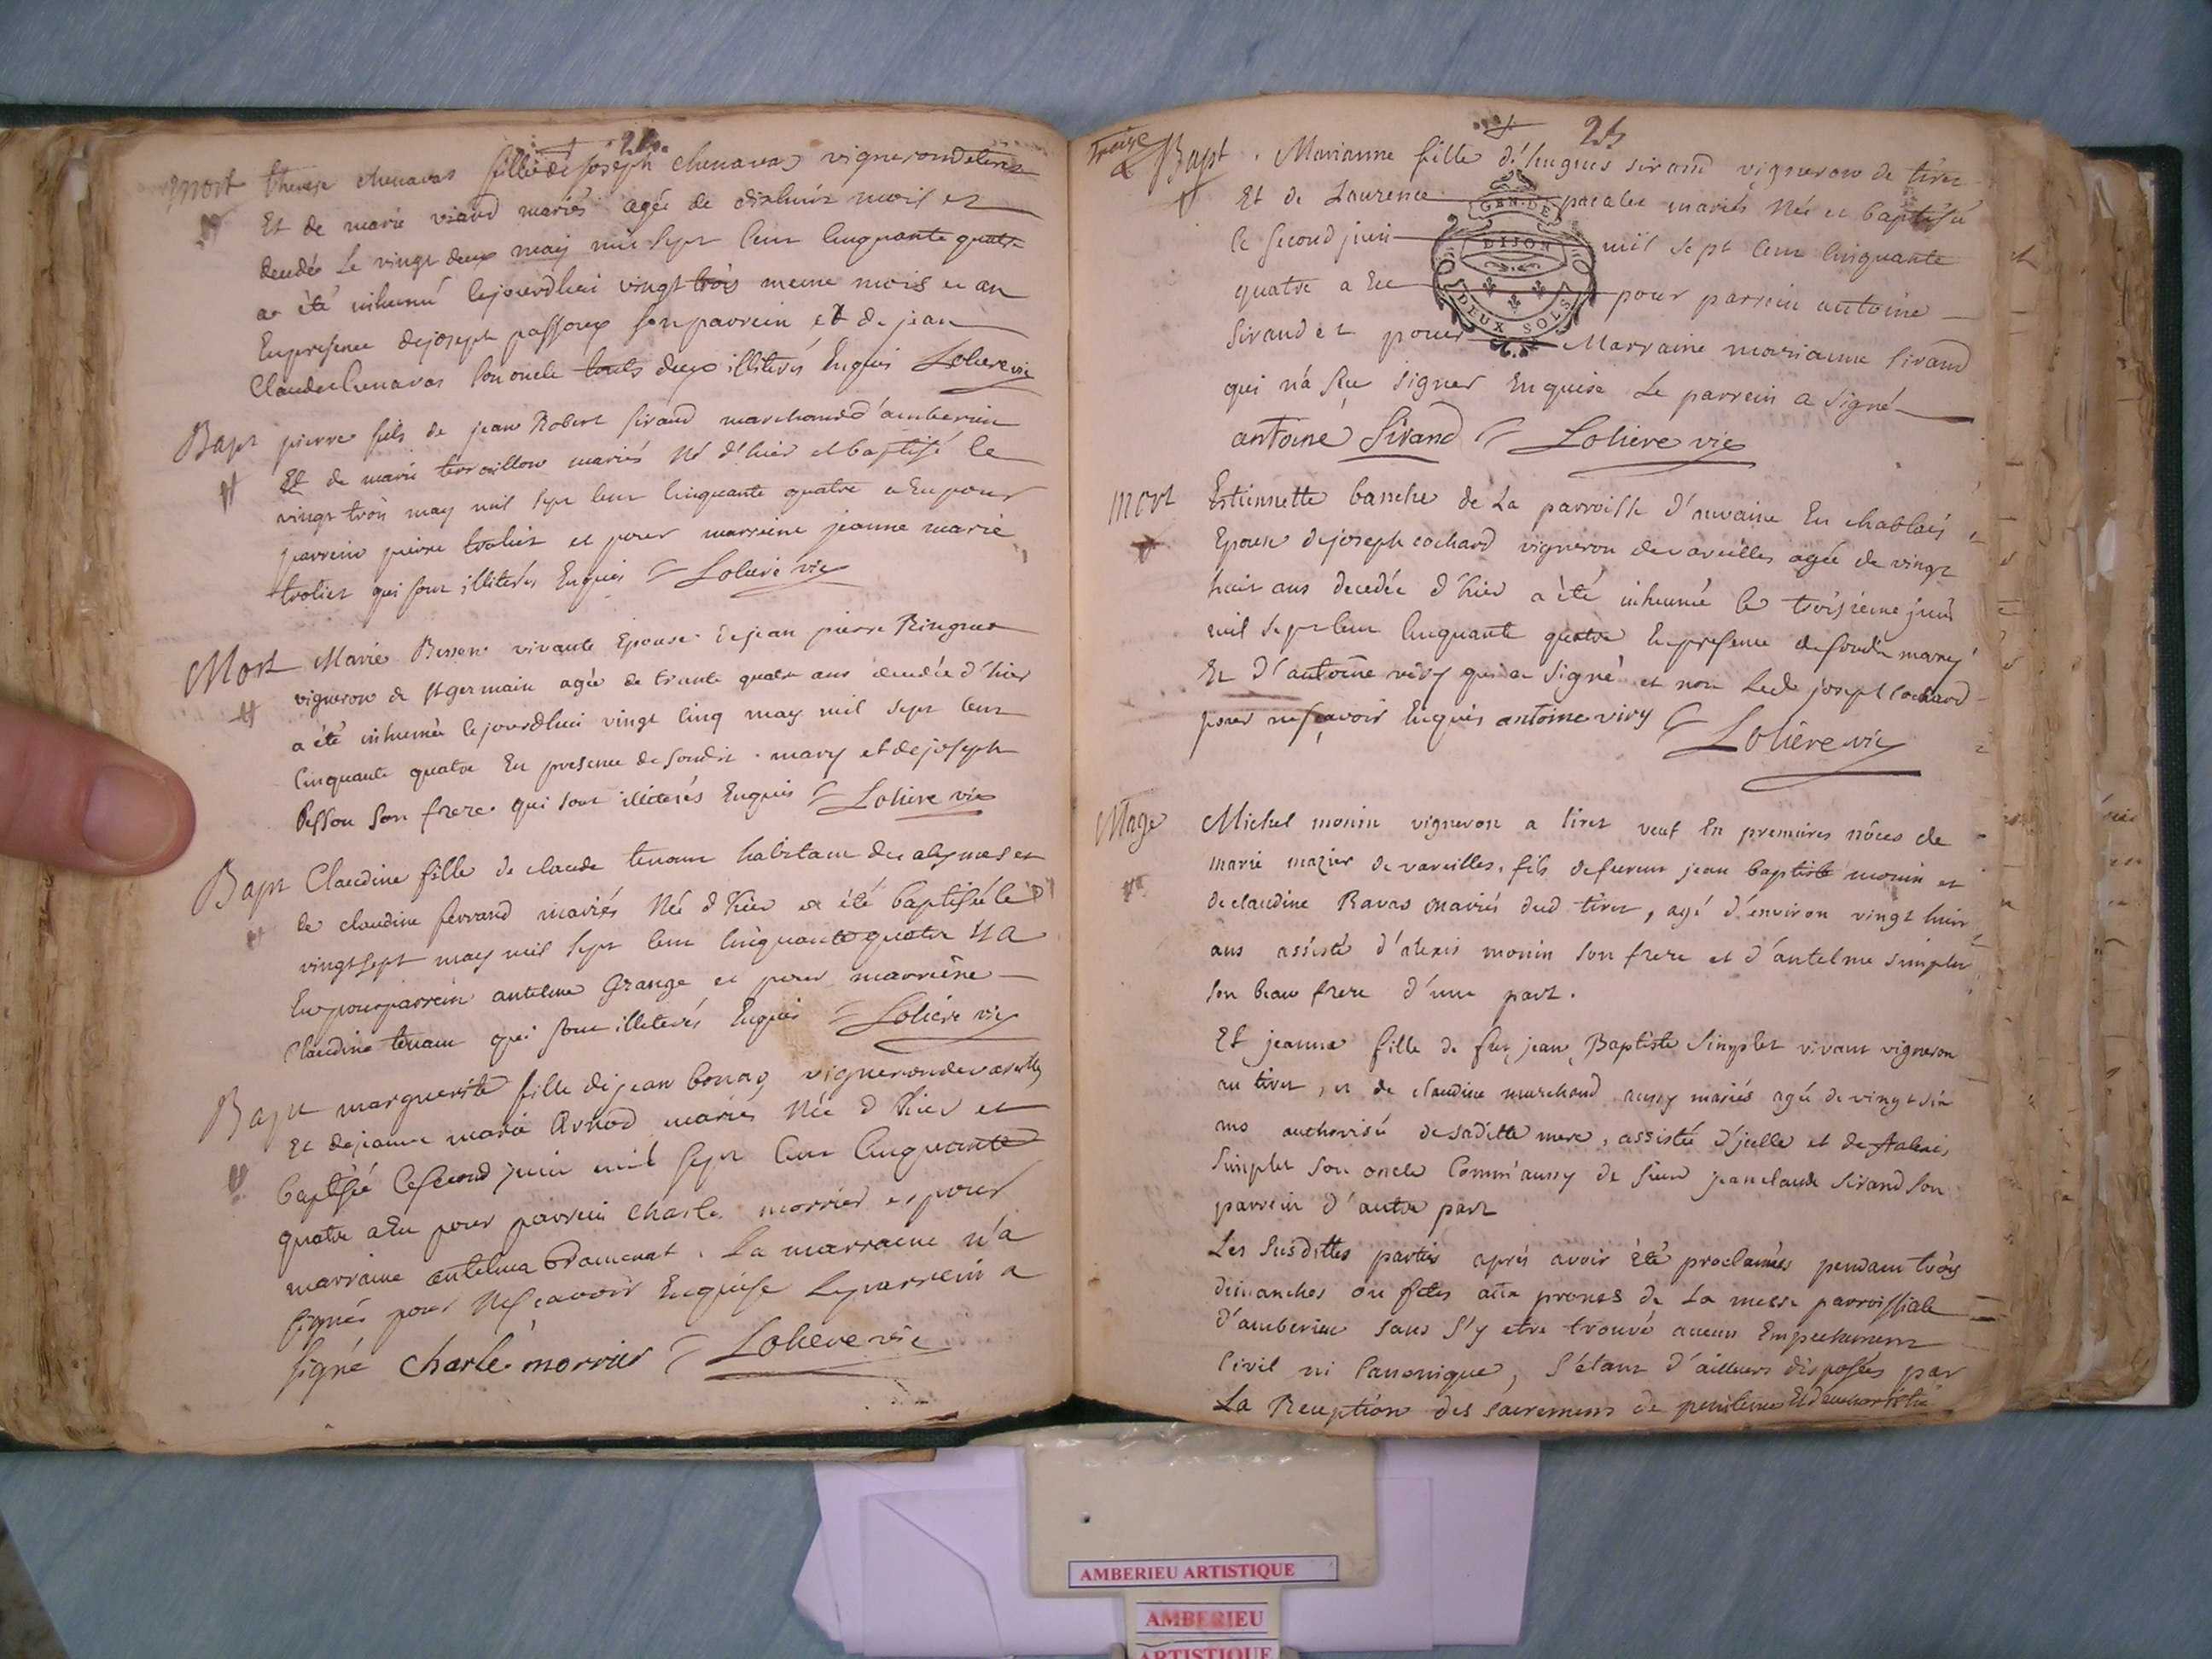 24
mort therese chenavas fille de joseph chenavas vigneron de tiret
Et de marie viaud mariés agée de dixhuit mois et
decedée Le vingt deux may mil sept cent cinquante quatre
a été inhumé cejourdhui vingt trois meme mois et an
En presence de joseph passoux son parrein et de jean
Claude chenavas son oncle touts deux illiterés Enquis Loliere vic
Bapt pierre fils de jean Robert sirand marchand d'amberieu
Et de marie terraillon mariés né d'hier et baptisé le
vingt trois may mil sept cent cinquante quatre a Eu pour
parrein pierre troliet et pour marreine jeanne marie
troliet qui sont illiterés Enquis Loliere vic
Mort Marie Besson vivante Epouse de jean pierre Ringuet
vigneron de st germain agée de trante quatre ans decedée d'hier
a été inhumée cejourdhui vingt cinq may mil sept cent
Cinquante quatre En presence de soudit mary et de joseph
Besson son frere qui sont illiterés Enquis Loliere vic
Bapt Claudine fille de claude tenant habitant des alymes et
de claudine ferrand mariés Née d'hier a été baptisée le
vingt sept may mil sept cent cinquante quatre Et a
Eu pour parrein antelme Grange et pour marreine
Claudine tenant qui sont illiterés Enquis Loliere vic
Bapt marguerite fille de jean bonas vigneron de vareilles
Et de jeanne marie Arnod mariés Née d'hier et
baptisée le second juin mil sept cent cinquante
quatre a Eu pour parrein charle morrier et pour
marraine antelma La marraine n'a
signée pour ne sçavoir Enquise Le parrein a
signé charle morrier Loliere vic
treize
25
Bapt Marianne fille d'hugues sirand vigneron de tiret
Et de Laurence pacalet mariés Née et baptisée
le second juin mil sept cent cinquante
quatre a Eu pour parrein antoine
sirand et pour Marraine marianne sirand
qui n'a sçu signer Enquise Le parrein a signé
antoine sirand Loliere vic
GEN. DE
DIJON
DEUX SOLS
mort Estiennette banche de La parroisse d'auvaine En chablais
Epouse de joseph cochard vigneron de vareilles agée de vingt
huit ans decedée d'hier a été inhumée le troisieme juin
mil sept cent cinquante quatre En presence de soudit mary
Et d'antoine vivy qui a signé et non Ledt joseph cochard
pour ne sçavoir Enquis antoine vivy Loliere vic
Mage Michel monin vigneron a tiret veuf En premieres nôces de
marie mazier de vareilles, fils de furent jean baptiste monin et
de claudine Ravas mariés dud tiret, agé d'environ vingt huit
ans assisté d'alexis monin son frere et d'antelme simplet
son beau frere d'une part.
Et jeanne fille de fut jean Baptiste Simplet vivant vigneron
au tiret, et de claudine marchand aussy mariés agée de vingt six
ans authorisée de sa ditte mere, assistée d'jcelle et de alexis
Simplet son oncle Comm'aussy de sieur jean claude sirand son
parrein d'autre part
Les susdittes parties aprés avoir été proclamées pendant trois
dimanches ou fêtes aux prones de La messe parroissiale
d'amberieu sans s'y etre trouvé aucun Empechement
Civil ni Canonique, s'étant d'ailleurs disposées par
La Reception des sacremens de penitence Et d'eucharistie
AMBERIEU ARTISTIQUE
AMBERIEU
ARTISTIQUE